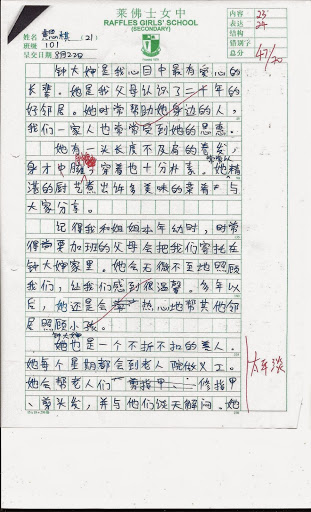 莱佛士女中
RAFFLES GIRLS' SCHOOL
(SECONDARY)
姓名 (21)
班级 101
呈交日期 8月22日
内容 23
表达 24
结构
错别字
总分 47/70
钟大婶是我心目中最有爱心的
长辈。她是我父母认识了二十年的
好邻居。她时常帮助她身边的人，
我们一家人也常常受到她的恩惠。
她有一头长度不及肩的卷发，
身才中 ，穿着也十分朴素。她 精
湛的厨艺煮出许多美味的菜肴 与
大家分享。
记得我和姐姐本年幼时，时常
得 要加班的父母会把我们寄托在
钟大婶家里。她会无微不至地照顾
我们，让我们感到很温馨。多年以
后，她还是会 热心地帮其他邻
居照顾小孩。
钟大婶
她也是一个不折不扣的善人。
她每个星期都会到老人院做义工。
她会帮老人们 剪指甲、 修指甲
、剪头发，并与他们谈天解闷。她
太平淡